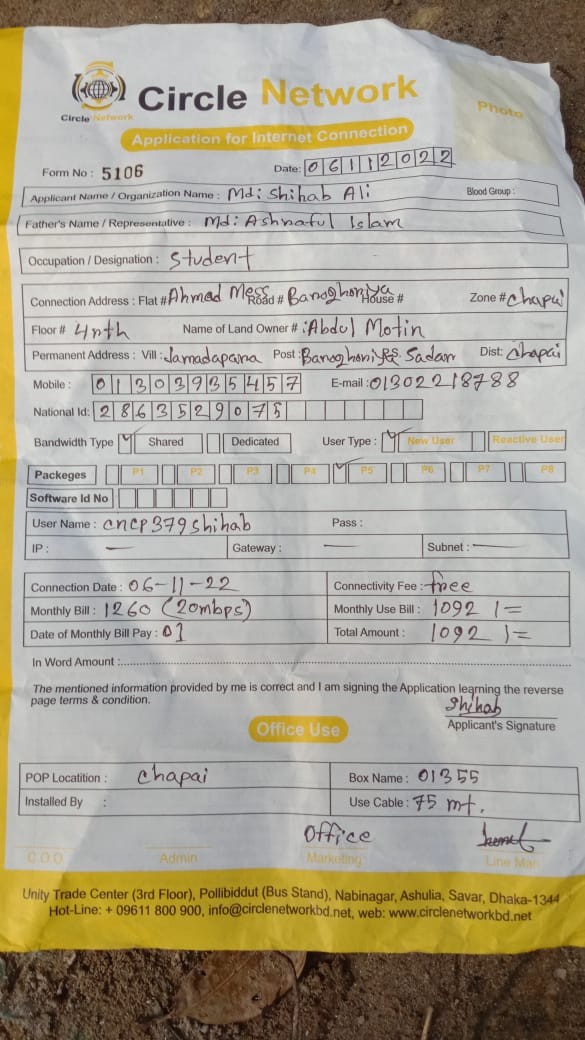 Circle Network
Circle Network
Photo
Application for Internet Connection
Form No : 5106 Date: 06112022
Applicant Name / Organization Name : Md: Shihab Ali Blood Group :
Father's Name / Representative : Md: Ashraful Islam
Occupation / Designation : Student
Connection Address : Flat # Ahmad Mess Road # Baroghoriya House # Zone # Chapai
Floor # 4nth Name of Land Owner # : Abdul Motin
Permanent Address : Vill : Jamadapara Post : Baroghoriya P.S. Sadar Dist: Chapai
Mobile : 01303935457 E-mail : 01302218788
National Id: 2863529075
Bandwidth Type Shared Dedicated User Type : New User Reactive User
Packeges P1 P2 P3 P4 P5 P6 P7 P8
Software Id No
User Name : cncp379shihab Pass :
IP : — Gateway : — Subnet : —
Connection Date : 06-11-22 Connectivity Fee : free
Monthly Bill : 1260 (20mbps) Monthly Use Bill : 1092 /=
Date of Monthly Bill Pay : 01 Total Amount : 1092 /=
In Word Amount :
The mentioned information provided by me is correct and I am signing the Application learning the reverse
page terms & condition.
Shihab
Applicant's Signature
Office Use
POP Locatition : Chapai Box Name : 01355
Installed By : Use Cable : 75 mt.
Office
C.O.O Admin Marketing Line Man
Unity Trade Center (3rd Floor), Pollibiddut (Bus Stand), Nabinagar, Ashulia, Savar, Dhaka-1344
Hot-Line: + 09611 800 900, info@circlenetworkbd.net, web: www.circlenetworkbd.net